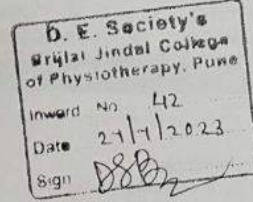 D. E. Society's
Brijlal Jindal College
of Physiotherapy, Pune
Inward No 42
Date 21/1/2023
Sign